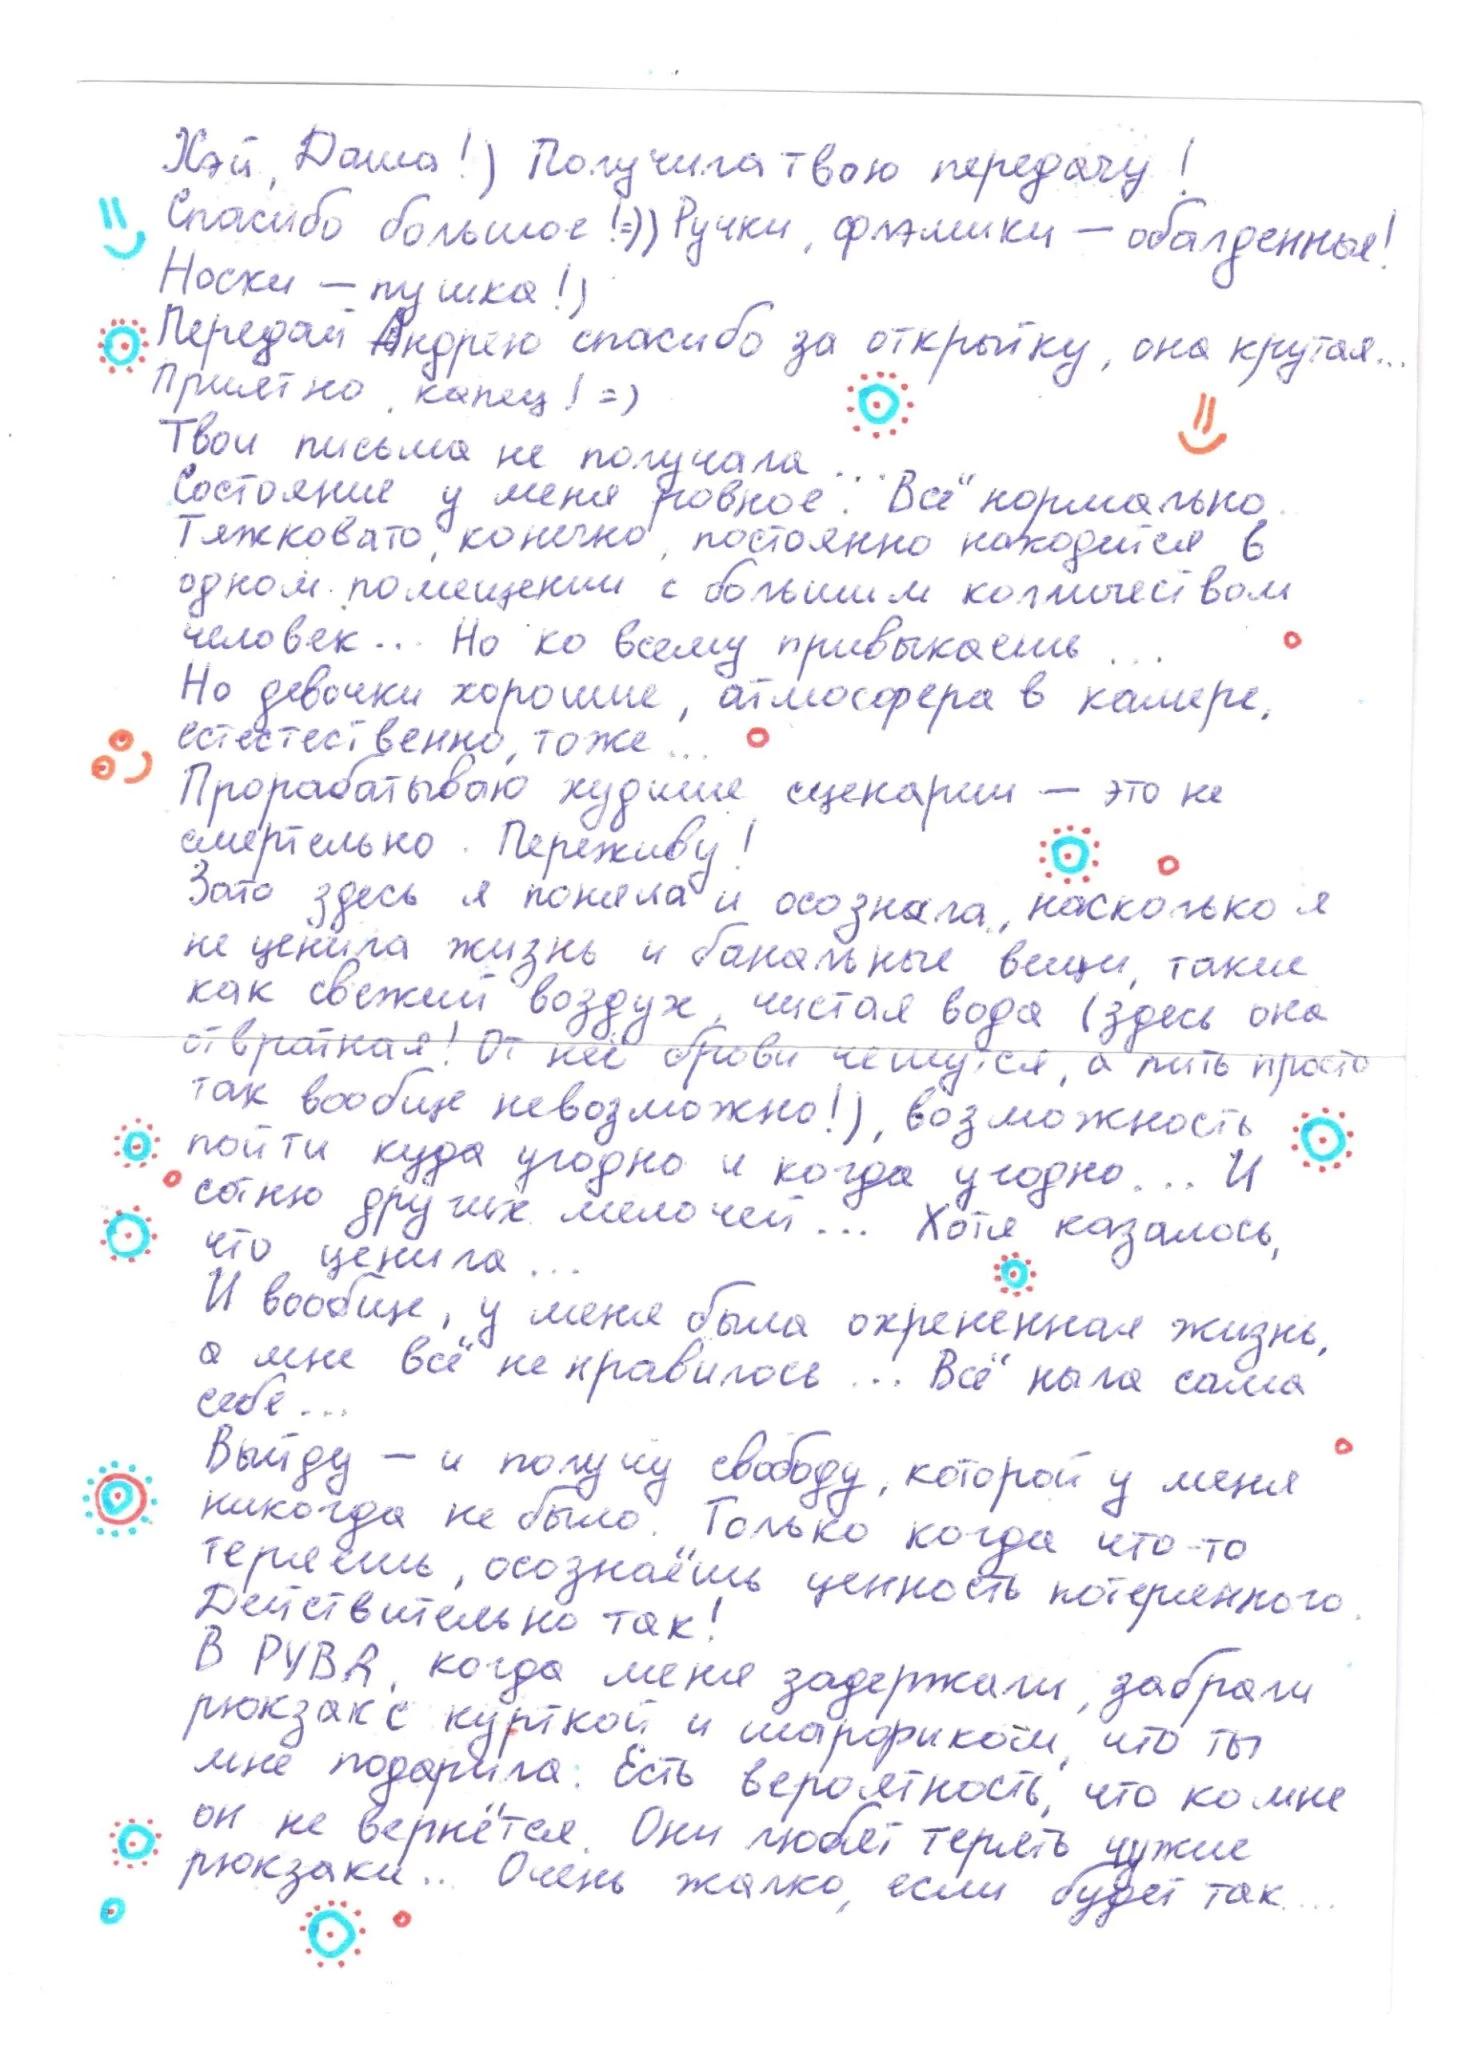 Хэй, Даша!) Получила твою передачу!
Спасибо большое!=)) Ручки, флэмики — обалденные!
Носки — пушка!)
Передай Андрею спасибо за открытку, она крутая...
Приятно, капец! =)
Твои письма не получала...
Состояние у меня ровное. Всё нормально.
Тяжковато, конечно, постоянно находится в
одном помещении с большим количеством
человек... Но ко всему привыкаешь...
Но девочки хорошие, атмосфера в камере,
естестественно, тоже...
Прорабатываю худшие сценарии — это не
смертельно. Переживу!
Зато здесь я поняла и осознала, насколько я
не ценила жизнь и банальные вещи, такие
как свежий воздух, чистая вода (здесь она
отвратная! От неё брови чешутся, а пить просто
так вообще невозможно!), возможность
пойти куда угодно и когда угодно... И
сотню других мелочей... Хотя казалось,
что ценила...
И вообще, у меня была охрененная жизнь,
а мне всё не нравилось... Всё ныла сама
себе...
Выйду — и получу свободу, которой у меня
никогда не было. Только когда что-то
теряешь, осознаёшь ценность потерянного.
Действительно так!
В РУВД, когда меня задержали, забрали
рюкзак с курткой и шарфиком, что ты
мне подарила. Есть вероятность, что ко мне
он не вернётся. Они любят терять чужие
рюкзаки... Очень жалко, если будет так...